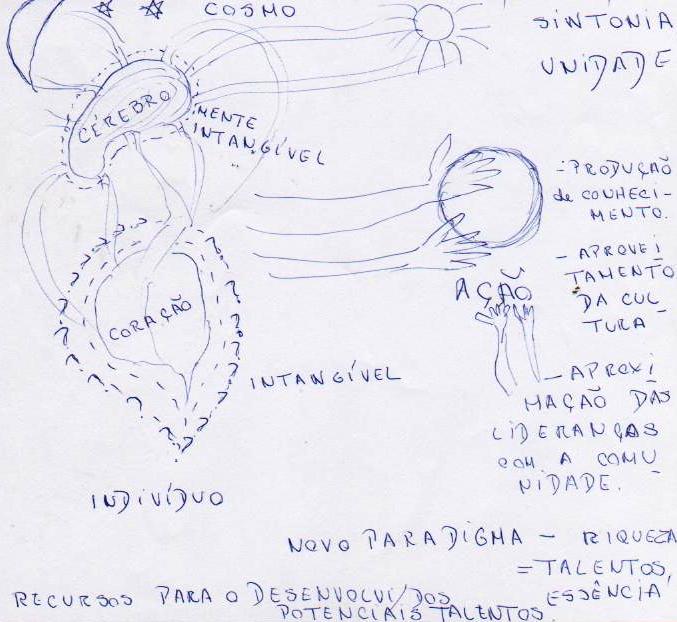 COSMO
SINTONIA
UNIDADE
CÉREBRO
MENTE
INTANGÍVEL
- PRODUÇÃO
de CONHECI-
MENTO.
- APROVEI
TAMENTO
DA CUL
TURA -
AÇÃO
CORAÇÃO
INTANGÍVEL
- APROXI
MAÇÃO DAS
LIDERANÇAS
COM A COMU
NIDADE.
INDIVÍDUO
NOVO PARADIGMA - RIQUEZA
= TALENTOS,
ESSÊNCIA
RECURSOS PARA O DESENVOLVI/DOS
POTENCIAIS TALENTOS.